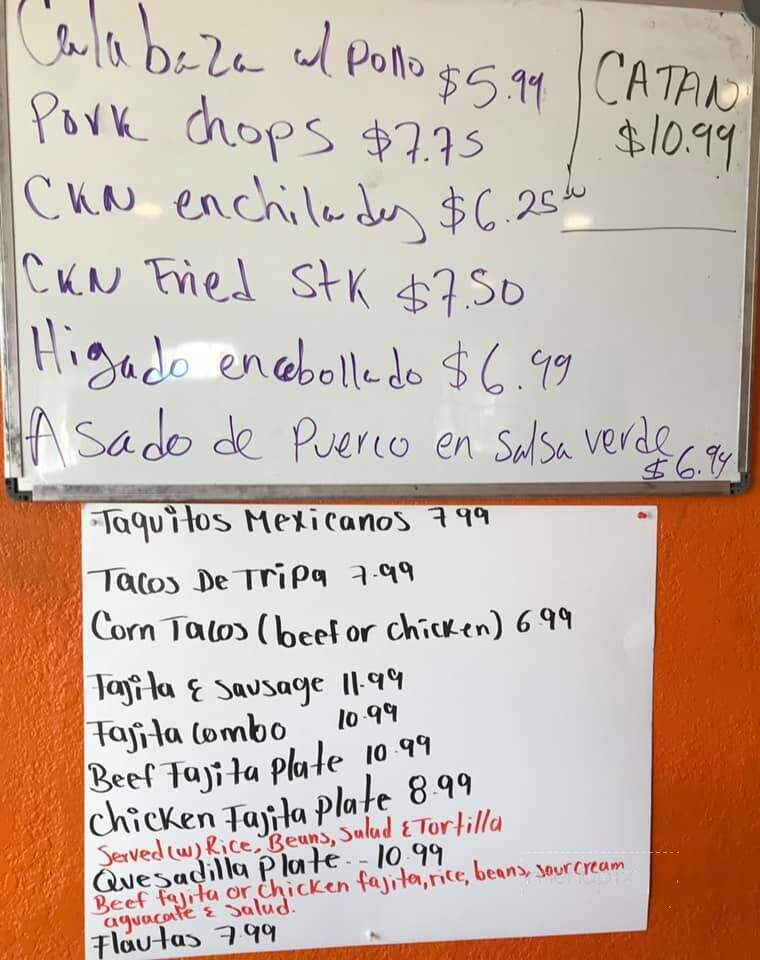 Calabaza al pollo $5.99
Pork chops $7.75
CKN enchiladas $6.25
CKN Fried Stk $7.50
Higado encebollado $6.99
Asado de Puerco en salsa verde
$6.94
CATAN
$10.99
Taquitos Mexicanos 7 99
Tacos De Tripa 7.99
Corn Tacos (beef or chicken) 6.99
Fajita & Sausage 11.99
Fajita Combo 10.99
Beef Fajita Plate 10.99
Chicken Fajita Plate 8.99
Served (w) Rice, Beans, Salad & Tortilla
Quesadilla Plate -- 10.99
Beef fajita or Chicken fajita, rice, beans, sour cream
aguacate & Salad.
Flautas 7.99